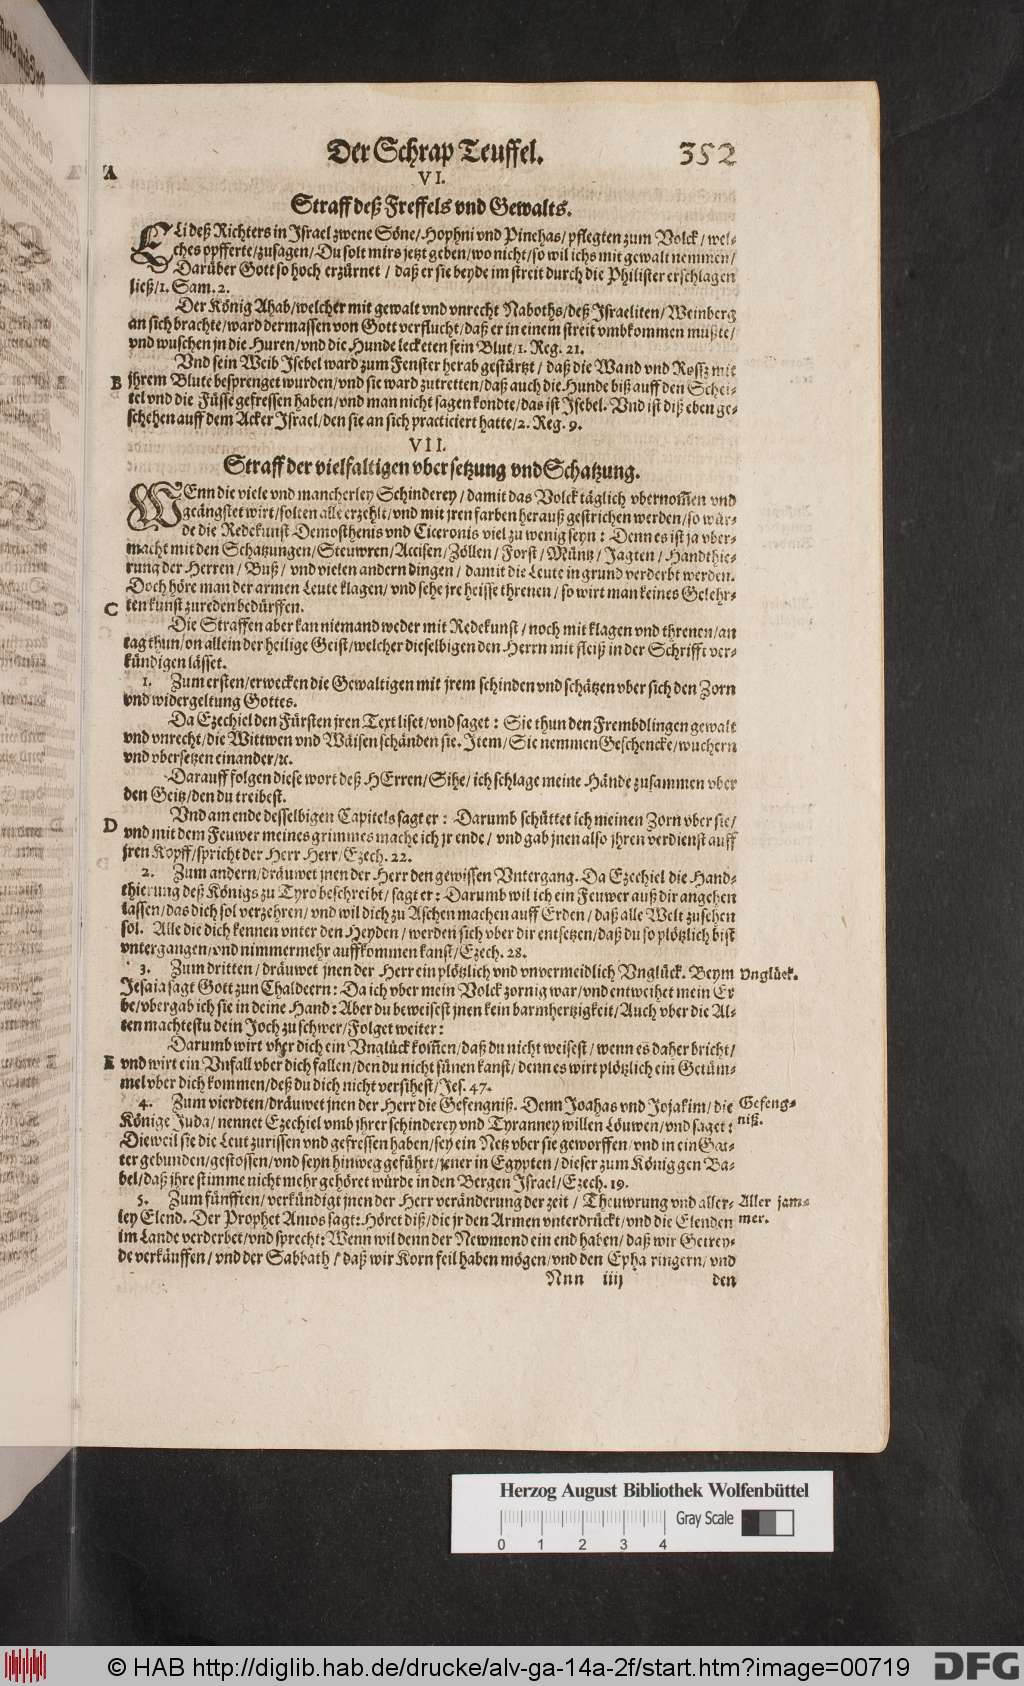 Der Schrap Teuffel. 352
A
VI.
Straff deß Freffels vnd Gewalts.
ELi deß Richters in Israel zwene Söne/Hophni vnd Pinehas/pflegten zum Volck/wel-
ches opfferte/zusagen/Du solt mirs jetzt geben/wo nicht/so wil ichs mit gewalt nemmen/
Darüber Gott so hoch erzürnet/daß er sie beyde im streit durch die Philister erschlagen
ließ/1. Sam. 2.
Der König Ahab/welcher mit gewalt vnd vnrecht Naboths/deß Israeliten/Weinberg
an sich brachte/ward dermassen von Gott verflucht/daß er in einem streit vmbkommen müßte/
vnd wuschen jn die Huren/vnd die Hunde lecketen sein Blut/1. Reg. 21.
Vnd sein Weib Isebel ward zum Fenster herab gestürtzt/daß die Wand vnd Rossz mit
B jhrem Blute besprenget wurden/vnd sie ward zutretten/daß auch die Hunde biß auff den Schei-
tel vnd die Füsse gefressen haben/vnd man nicht sagen kondte/das ist Isebel. Vnd ist diß eben ge-
schehen auff dem Acker Israel/den sie an sich practiciert hatte/2. Reg. 9.
VII.
Straff der vielfaltigen vbersetzung vnd Schatzung.
WEnn die viele vnd mancherley Schinderey/damit das Volck täglich vbernom̃en vnd
geängstet wirt/solten alle erzehlt/vnd mit jren farben herauß gestrichen werden/so wür-
de die Redekunst Demosthenis vnd Ciceronis viel zu wenig seyn: Denn es ist ja vber-
macht mit den Schatzungen/Steuwren/Accisen/Zöllen/Forst/Müntz/Jagten/Handthie-
rung der Herren/Buß/vnd vielen andern dingen/damit die Leute in grund verderbt werden.
Doch höre man der armen Leute klagen/vnd sehe jre heisse threnen/so wirt man keines Gelehr-
C ten kunst zureden bedürffen.
Die Straffen aber kan niemand weder mit Redekunst/noch mit klagen vnd threnen/an
tag thun/on allein der heilige Geist/welcher dieselbigen den Herrn mit fleiß in der Schrifft ver-
kündigen lässet.
1. Zum ersten/erwecken die Gewaltigen mit jrem schinden vnd schätzen vber sich den Zorn
vnd widergeltung Gottes.
Da Ezechiel den Fürsten jren Text liset/vnd saget: Sie thun den Frembdlingen gewalt
vnd vnrecht/die Wittwen vnd Wäisen schänden sie. Item/Sie nemmen Geschencke/wuchern
vnd vbersetzen einander/ꝛc.
Darauff folgen diese wort deß HErren/Sihe/ich schlage meine Hände zusammen vber
den Geitz/den du treibest.
Vnd am ende desselbigen Capitels sagt er: Darumb schüttet ich meinen Zorn vber sie/
D vnd mit dem Feuwer meines grimmes mache ich jr ende/vnd gab jnen also jhren verdienst auff
jren Kopff/spricht der Herr Herr/Ezech. 22.
2. Zum andern/dräuwet jnen der Herr den gewissen Vntergang. Da Ezechiel die Hand-
thierung deß Königs zu Tyro beschreibt/sagt er: Darumb wil ich ein Feuwer auß dir angehen
lassen/das dich sol verzehren/vnd wil dich zu Aschen machen auff Erden/daß alle Welt zusehen
sol. Alle die dich kennen vnter den Heyden/werden sich vber dir entsetzen/daß du so plötzlich bist
vntergangen/vnd nimmermehr auffkommen kanst/Ezech. 28.
3. Zum dritten/dräuwet jnen der Herr ein plötzlich vnd vnvermeidlich Vnglück. Beym Vnglück.
Jesaia sagt Gott zun Chaldeern: Da ich vber mein Volck zornig war/vnd entweihet mein Er
be/vbergab ich sie in deine Hand: Aber du beweisest jnen kein barmhertzigkeit/Auch vber die Al-
ten machtestu dein Joch zu schwer/Folget weiter:
Darumb wirt vber dich ein Vnglück kom̃en/daß du nicht weisest/wenn es daher bricht/
E vnd wirt ein Vnfall vber dich fallen/den du nicht sünen kanst/denn es wirt plötzlich ein Getüm-
mel vber dich kommen/deß du dich nicht versihest/Jes. 47.
4. Zum vierdten/dräuwet jnen der Herr die Gefengniß. Denn Joahas vnd Jojakim/die Gefeng-
Könige Juda/nennet Ezechiel vmb jhrer schinderey vnd Tyranney willen Löuwen/vnd saget: niß.
Dieweil sie die Leut zurissen vnd gefressen haben/sey ein Netz vber sie geworffen/vnd in ein Gat-
ter gebunden/gestossen/vnd seyn hinweg geführt/jener in Egypten/dieser zum König gen Ba-
bel/daß jhre stimme nicht mehr gehöret würde in den Bergen Israel/Ezech. 19.
5. Zum fünfften/verkündigt jnen der Herr veränderung der zeit/Theuwrung vnd aller- Aller jam-
ley Elend. Der Prophet Amos sagt: Höret diß/die jr den Armen vnterdrückt/vnd die Elenden mer.
im Lande verderbet/vnd sprecht: Wenn wil denn der Newmond ein end haben/daß wir Getrey-
de verkäuffen/vnd der Sabbath/daß wir Korn feil haben mögen/vnd den Epha ringern/vnd
Nnn iiij den
Herzog August Bibliothek Wolfenbüttel
Gray Scale
0 1 2 3 4
© HAB http://diglib.hab.de/drucke/alv-ga-14a-2f/start.htm?image=00719
DFG